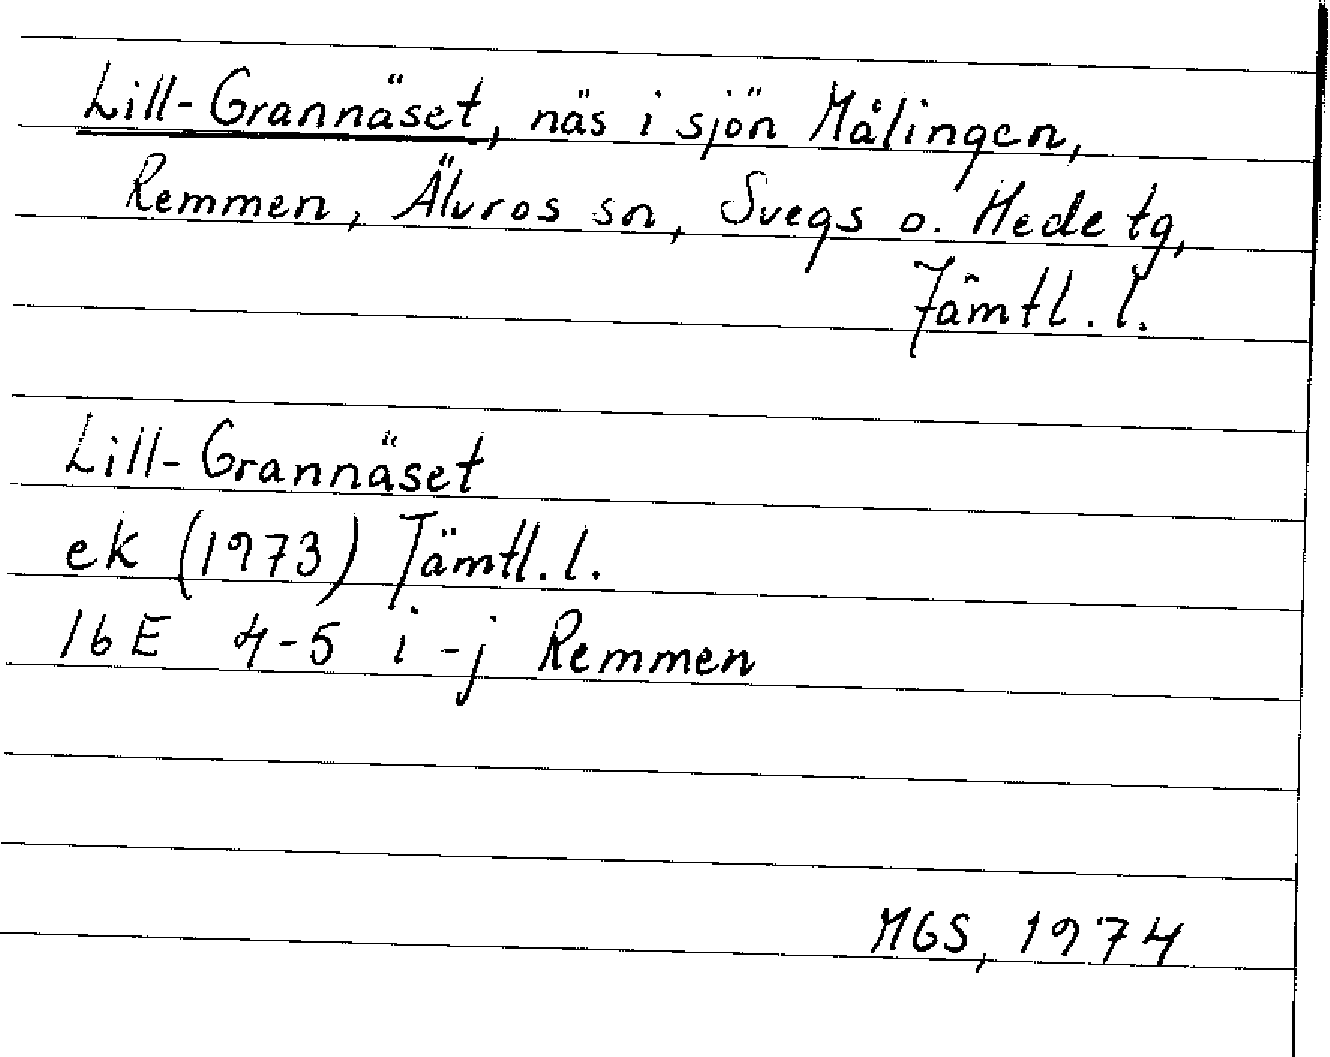 Lill-Grannäset, näs i sjön Målingen,
Remmen, Älvros sn, Svegs o. Hede tg,
Jämtl. l.
Lill-Grannäset
ek (1973) Jämtl. l.
16E 4-5 i-j Remmen
MGS, 1974